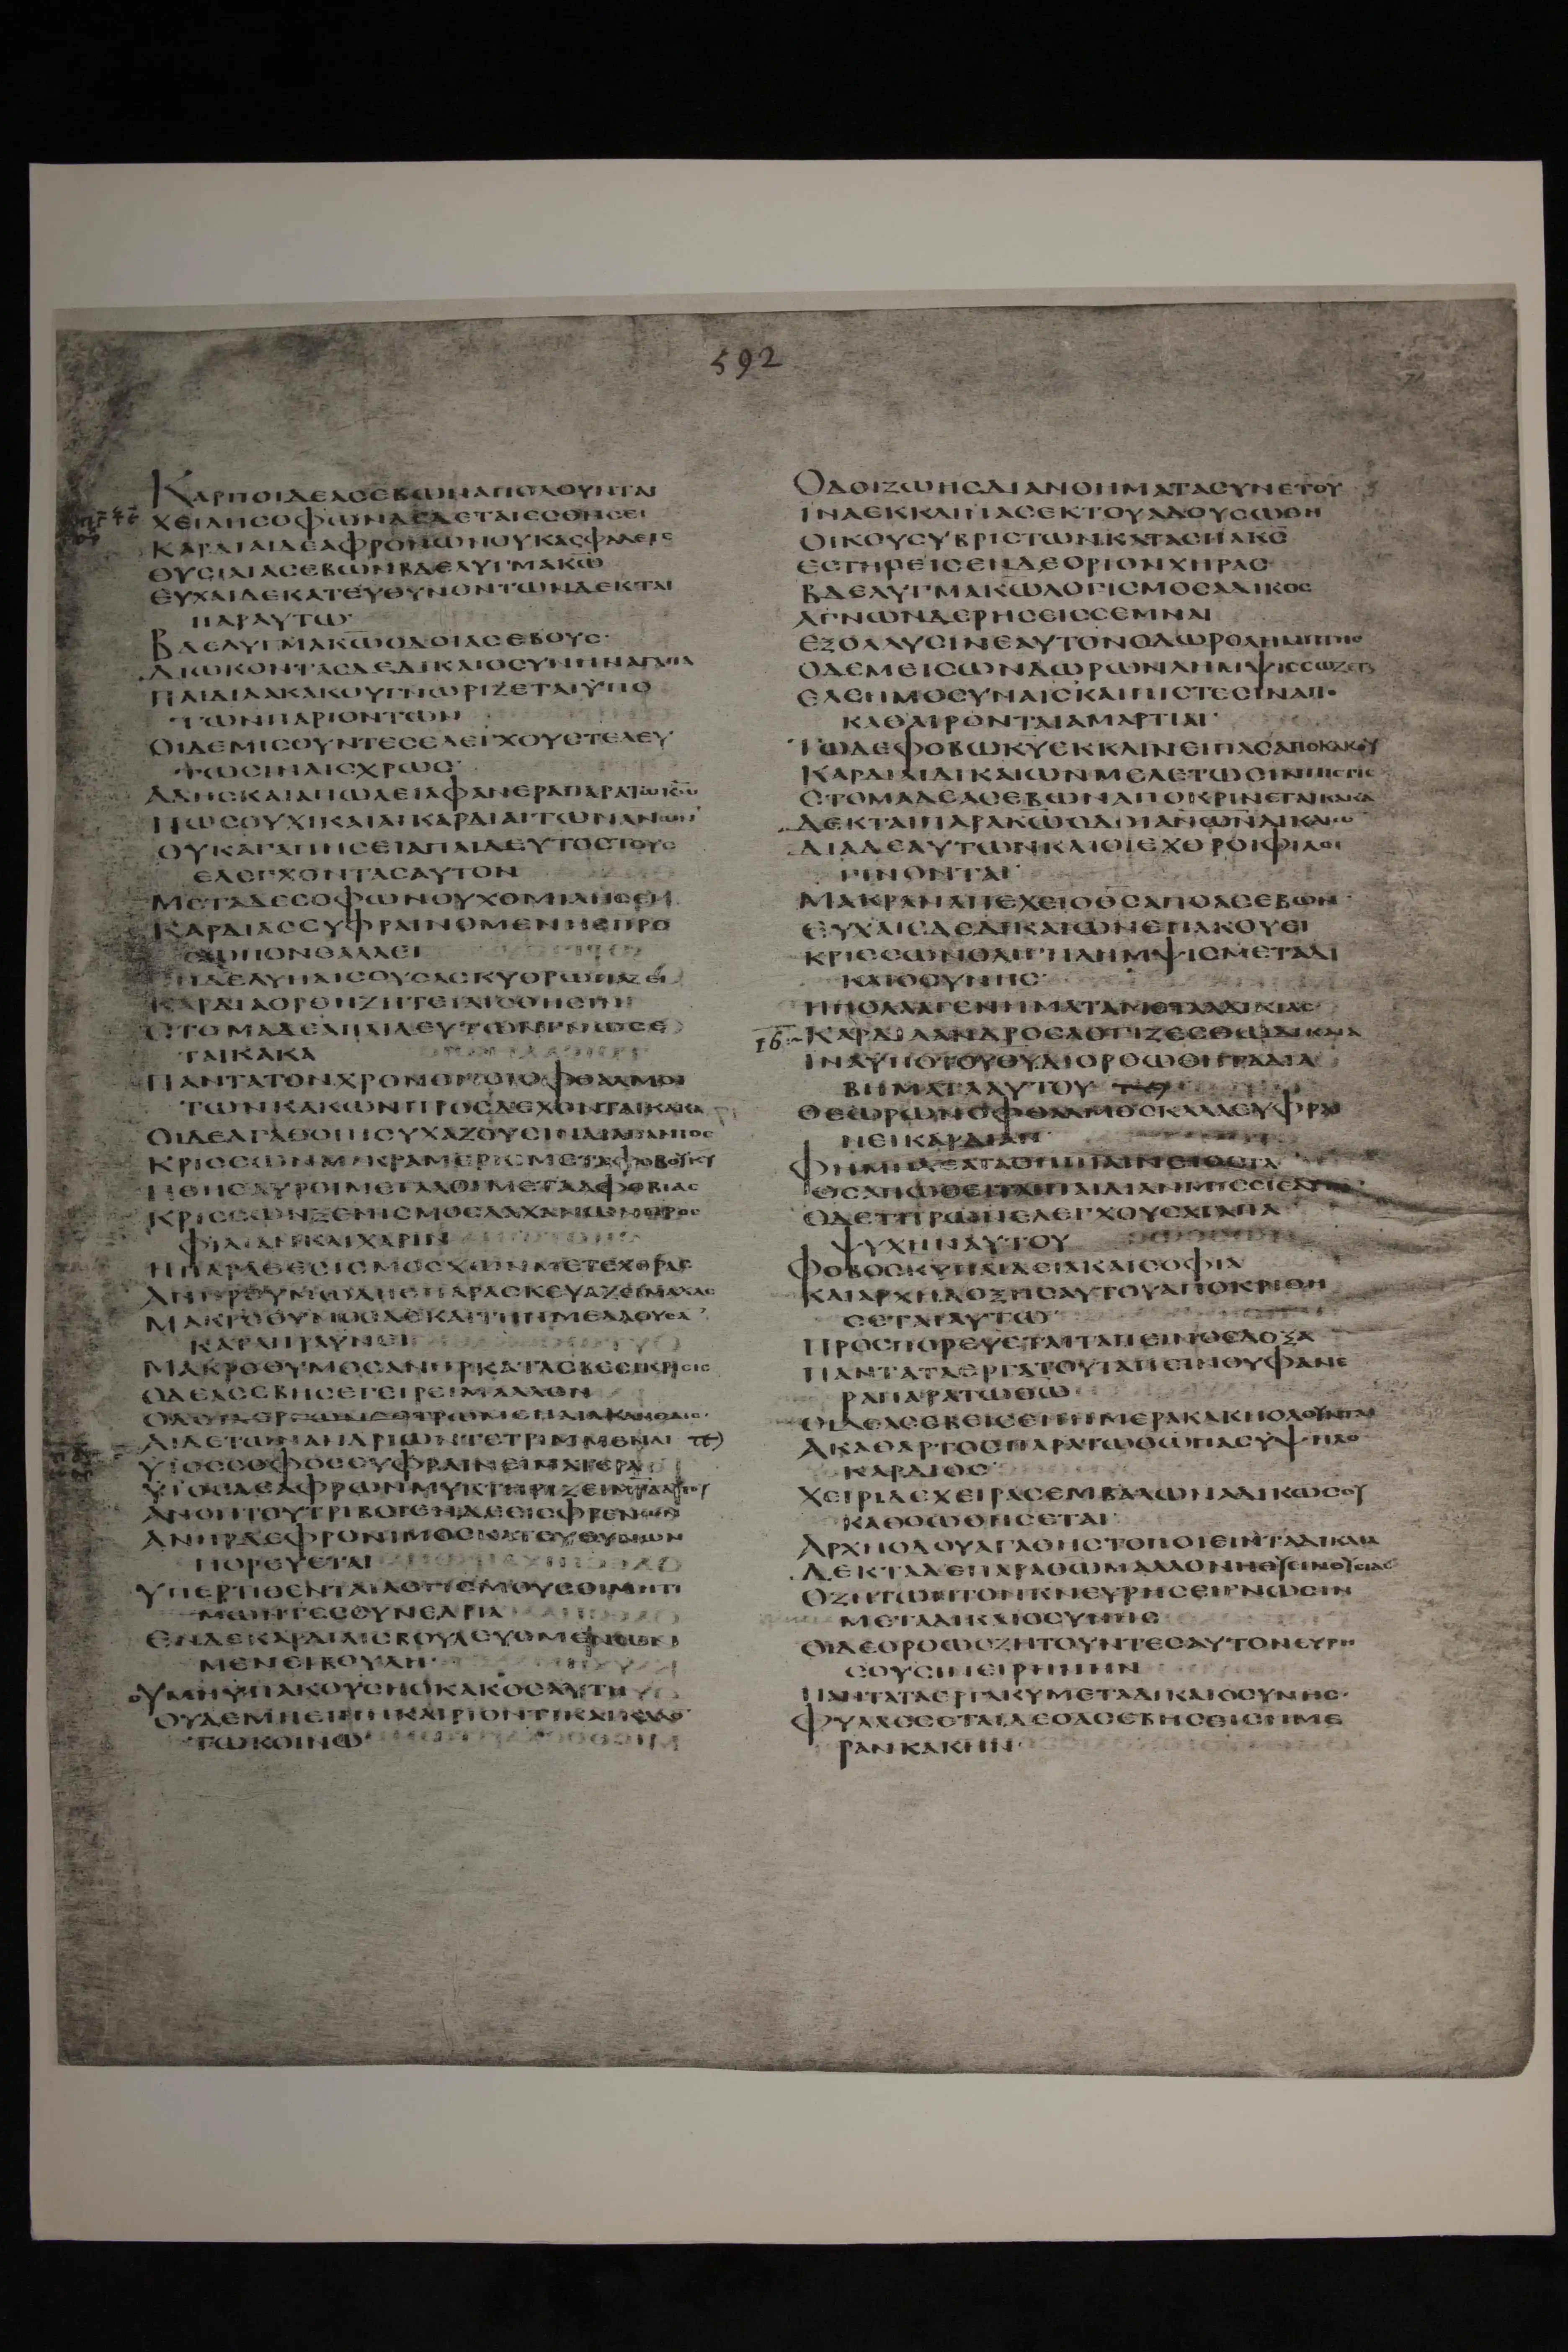 592
ΚΑΡΠΟΙΔΕΑΣΕΒΩΝΑΠΟΛΟΥΝΤΑΙ
ΧΕΙΛΗΣΟΦΩΝΔΕΔΕΤΑΙΕΣΘΗΣΕΙ
ΚΑΡΔΙΑΙΔΕΑΦΡΟΝΩΝΟΥΚΑΣΦΑΛΕΙΣ
ΘΥΣΙΑΙΑΣΕΒΩΝΒΔΕΛΥΓΜΑΚΩ
ΕΥΧΑΙΔΕΚΑΤΕΥΘΥΝΟΝΤΩΝΔΕΚΤΑΙ
ΠΑΡΑΥΤΩ
ΒΔΕΛΥΓΜΑΚΩΟΔΟΙΑΣΕΒΟΥΣ
ΔΙΩΚΟΝΤΑΣΔΕΔΙΚΑΙΟΣΥΝΗΝΑΓΑΠΑ
ΠΑΙΔΙΑΑΚΑΚΟΥΓΝΩΡΙΖΕΤΑΙΫΠΟ
ΤΩΝΠΑΡΙΟΝΤΩΝ
ΟΙΔΕΜΙΣΟΥΝΤΕΣΕΛΕΓΧΟΥΣΤΕΛΕΥ
ΤΩΣΙΝΑΙΣΧΡΩΣ
ΑΔΗΣΚΑΙΑΠΩΛΕΙΑΦΑΝΕΡΑΠΑΡΑΤΩΚΩ
ΠΩΣΟΥΧΙΚΑΙΑΙΚΑΡΔΙΑΙΤΩΝΑΝΩΝ
ΟΥΚΑΓΑΠΗΣΕΙΑΠΑΙΔΕΥΤΟΣΤΟΥΣ
ΕΛΕΓΧΟΝΤΑΣΑΥΤΟΝ
ΜΕΤΑΔΕΣΟΦΩΝΟΥΧΟΜΙΛΗΣΕΙ
ΚΑΡΔΙΑΣΕΥΦΡΑΙΝΟΜΕΝΗΣΠΡΟ
ΣΩΠΟΝΘΑΛΛΕΙ
ΕΝΔΕΛΥΠΑΙΣΟΥΣΑΣΚΥΘΡΩΠΑΖΕΙ
ΚΑΡΔΙΑΟΡΘΗΖΗΤΕΙΑΙΣΘΗΣΙΝ
ΣΤΟΜΑΔΕΑΠΑΙΔΕΥΤΩΝΓΝΩΣΕ
ΤΑΙΚΑΚΑ
ΠΑΝΤΑΤΟΝΧΡΟΝΟΝΟΙΟΦΘΑΛΜΟΙ
ΤΩΝΚΑΚΩΝΠΡΟΣΔΕΧΟΝΤΑΙΚΑΚΑ
ΟΙΔΕΑΓΑΘΟΙΗΣΥΧΑΖΟΥΣΙΝΔΙΑΠΑΝΤΟΣ
ΚΡΙΣΣΩΝΜΙΚΡΑΜΕΡΙΣΜΕΤΑΦΟΒΟΥΚΥ
ΗΘΗΣΑΥΡΟΙΜΕΓΑΛΟΙΜΕΤΑΑΦΟΒΙΑΣ
ΚΡΙΣΣΩΝΞΕΝΙΣΜΟΣΛΑΧΑΝΩΝΠΡΟΣ
ΦΙΛΙΑΝΚΑΙΧΑΡΙΝ
ΗΠΑΡΑΘΕΣΙΣΜΟΣΧΩΝΜΕΤΕΧΘΡΑΣ
ΑΝΗΡΘΥΜΩΔΗΣΠΑΡΑΣΚΕΥΑΖΕΙΜΑΧΑΣ
ΜΑΚΡΟΘΥΜΟΣΔΕΚΑΙΤΗΝΜΕΛΛΟΥΣΑ
ΚΑΤΑΠΡΑΥΝΕΙ
ΜΑΚΡΟΘΥΜΟΣΑΝΗΡΚΑΤΑΣΒΕΣΕΙΚΡΙΣΙΣ
ΟΔΕΑΣΕΒΗΣΕΓΕΙΡΕΙΜΑΛΛΟΝ
ΟΔΟΙΑΕΡΓΩΝΕΣΤΡΩΜΕΝΑΙΑΚΑΝΘΑΙΣ
ΑΙΔΕΤΩΝΑΝΔΡΙΩΝΤΕΤΡΙΜΜΕΝΑΙ
ΥΙΟΣΣΟΦΟΣΕΥΦΡΑΙΝΕΙΠΑΤΕΡΑ
ΥΙΟΣΔΕΑΦΡΩΝΜΥΚΤΗΡΙΖΕΙΜΡΑΑΥΤΟΥ
ΑΝΟΗΤΟΥΤΡΙΒΟΙΕΝΔΕΕΙΣΦΡΕΝΩΝ
ΑΝΗΡΔΕΦΡΟΝΙΜΟΣΚΑΤΕΥΘΥΝΩΝ
ΠΟΡΕΥΕΤΑΙ
ΥΠΕΡΤΙΘΕΝΤΑΙΛΟΓΙΣΜΟΥΣΟΙΜΗΤΙ
ΜΩΝΤΕΣΣΥΝΕΔΡΙΑ
ΕΝΔΕΚΑΡΔΙΑΙΣΒΟΥΛΕΥΟΜΕΝΩΝ
ΜΕΝΕΙΒΟΥΛΗ
ΟΥΜΗΥΠΑΚΟΥΣΗΟΚΑΚΟΣΑΥΤΗ
ΟΥΔΕΜΗΕΙΠΗΚΑΙΡΙΟΝΤΙΚΑΙΚΑΛΟ
ΤΩΚΟΙΝΩ
ΟΔΟΙΖΩΗΣΔΙΑΝΟΗΜΑΤΑΣΥΝΕΤΟΥ
ΙΝΑΕΚΚΛΙΝΑΣΕΚΤΟΥΑΔΟΥΣΩΘΗ
ΟΙΚΟΥΣΥΒΡΙΣΤΩΝΚΑΤΑΣΠΑΚΣ
ΕΣΤΗΡΕΙΣΕΝΔΕΟΡΙΟΝΧΗΡΑΣ
ΒΔΕΛΥΓΜΑΚΩΛΟΓΙΣΜΟΣΑΔΙΚΟΣ
ΑΓΝΩΝΔΕΡΗΣΕΙΣΣΕΜΝΑΙ
ΕΞΟΛΛΥΣΙΝΕΑΥΤΟΝΟΔΩΡΟΛΗΜΠΤΗΣ
ΟΔΕΜΕΙΣΩΝΔΩΡΩΝΛΗΜΨΙΣΣΩΖΕΤΕ
ΕΛΕΗΜΟΣΥΝΑΙΣΚΑΙΠΙΣΤΕΣΙΝΑΠΟ
ΚΑΘΑΙΡΟΝΤΑΙΑΜΑΡΤΙΑΙ
ΤΩΔΕΦΟΒΩΚΥΕΚΚΛΙΝΕΙΠΑΣΑΠΟΚΑΚΟΥ
ΚΑΡΔΙΑΙΔΙΚΑΙΩΝΜΕΛΕΤΩΣΙΝΠΙΣΤΙΣ
ΣΤΟΜΑΔΕΑΣΕΒΩΝΑΠΟΚΡΙΝΕΤΑΙΚΑΚΑ
ΔΕΚΤΑΙΠΑΡΑΚΩΟΔΟΙΑΝΩΝΔΙΚΑΙΩ
ΔΙΑΔΕΑΥΤΩΝΚΑΙΟΙΕΧΘΡΟΙΦΙΛΟΙ
ΓΙΝΟΝΤΑΙ
ΜΑΚΡΑΝΑΠΕΧΕΙΟΘΣΑΠΟΑΣΕΒΩΝ
ΕΥΧΑΙΣΔΕΔΙΚΑΙΩΝΕΠΑΚΟΥΕΙ
ΚΡΙΣΣΩΝΟΛΙΓΗΛΗΜΨΙΣΜΕΤΑΔΙ
ΚΑΙΟΣΥΝΗΣ
ΗΠΟΛΛΑΓΕΝΗΜΑΤΑΜΕΤΑΑΔΙΚΙΑΣ
ΙϚ ΚΑΡΔΙΑΑΝΔΡΟΣΛΟΓΙΖΕΣΘΩΔΙΚΑΙΑ
ΙΝΑΥΠΟΤΟΥΘΥΔΙΟΡΘΩΘΗΤΑΔΙΑ
ΒΗΜΑΤΑΑΥΤΟΥ
ΘΕΩΡΩΝΟΦΘΑΛΜΟΣΚΑΛΑΕΥΦΡΑΙ
ΝΕΙΚΑΡΔΙΑΝ
ΦΗΜΗΔΕΑΓΑΘΗΠΙΑΙΝΕΙΟΣΤΑ
ΟΣΑΠΩΘΕΙΤΑΙΠΑΙΔΙΑΝΜΙΣΕΙΕΑΥΤΟΝ
ΟΔΕΤΗΡΩΝΕΛΕΓΧΟΥΣΑΓΑΠΑ
ΨΥΧΗΝΑΥΤΟΥ
ΦΟΒΟΣΚΥΠΑΙΔΙΑΚΑΙΣΟΦΙΑ
ΚΑΙΑΡΧΗΔΟΞΗΣΑΥΤΟΥΑΠΟΚΡΙΘΗ
ΣΕΤΑΙΑΥΤΩ
ΠΡΟΣΠΟΡΕΥΣΕΤΑΙΤΑΠΕΙΝΟΙΣΔΟΞΑ
ΠΑΝΤΑΤΑΕΡΓΑΤΟΥΤΑΠΕΙΝΟΥΦΑΝΕ
ΡΑΠΑΡΑΤΩΘΩ
ΟΙΔΕΑΣΕΒΕΙΣΕΝΗΜΕΡΑΚΑΚΗΟΛΟΥΝΤΑΙ
ΑΚΑΘΑΡΤΟΣΠΑΡΑΤΩΘΩΠΑΣΥΨΗΛΟ
ΚΑΡΔΙΟΣ
ΧΕΙΡΙΔΕΧΕΙΡΑΣΕΜΒΑΛΩΝΑΔΙΚΩΣΟΥ
ΚΑΘΩΩΘΗΣΕΤΑΙ
ΑΡΧΗΟΔΟΥΑΓΑΘΗΣΤΟΠΟΙΕΙΝΤΑΔΙΚΑΙΑ
ΔΕΚΤΑΔΕΠΑΡΑΘΩΜΑΛΛΟΝΗΘΥΕΙΝΘΥΣΙΑΣ
ΟΖΗΤΩΝΤΟΝΚΝΕΥΡΗΣΕΙΓΝΩΣΙΝ
ΜΕΤΑΔΙΚΑΙΟΣΥΝΗΣ
ΟΙΔΕΟΡΘΩΣΖΗΤΟΥΝΤΕΣΑΥΤΟΝΕΥΡΗ
ΣΟΥΣΙΝΕΙΡΗΝΗΝ
ΠΑΝΤΑΤΑΕΡΓΑΚΥΜΕΤΑΔΙΚΑΙΟΣΥΝΗΣ
ΦΥΛΑΣΣΕΤΑΙΔΕΟΑΣΕΒΗΣΕΙΣΗΜΕ
ΡΑΝΚΑΚΗΝ